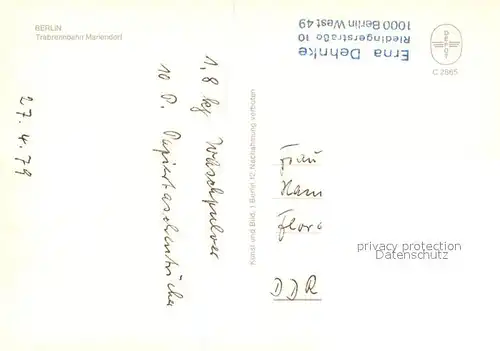 BERLIN
Trabrennbahn Mariendorf
Erna Dehnke
Riedingerstraße 10
1000 Berlin West 49
DEPOT
C 2865
27.4.79
1,8 kg Waschpulver
10 P. Papiertaschentücher
Kunst und Bild, 1 Berlin 12, Nachahmung verboten
Frau
Hann
Flora
DDR
privacy protection
Datenschutz